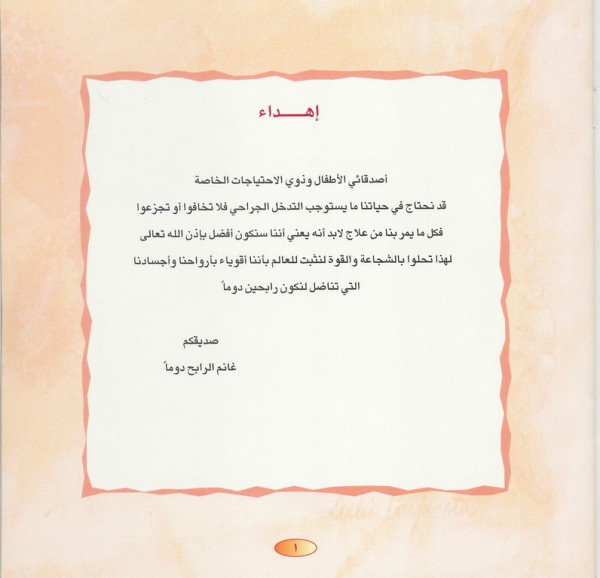 إهـــداء
أصدقائي الأطفال وذوي الاحتياجات الخاصة
قد نحتاج في حياتنا ما يستوجب التدخل الجراحي فلا تخافوا أو تجزعوا
فكل ما يمر بنا من علاج لابد أنه يعني أننا سنكون أفضل بإذن الله تعالى
لهذا تحلوا بالشجاعة والقوة لنثبت للعالم بأننا أقوياء بأرواحنا وأجسادنا
التي تناضل لنكون رابحين دوماً
صديقكم
غانم الرابح دوماً
١